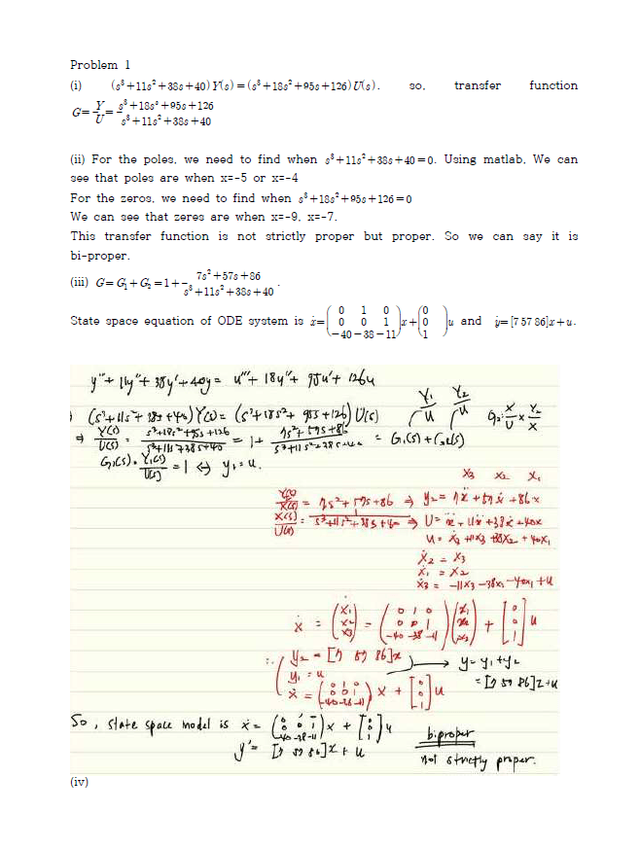 Problem 1
(i) (s³+11s²+38s+40)Y(s)=(s³+18s²+95s+126)U(s). so, transfer function
G=Y/U=(s³+18s²+95s+126)/(s³+11s²+38s+40)
(ii) For the poles, we need to find when s³+11s²+38s+40=0. Using matlab, We can
see that poles are when x=-5 or x=-4
For the zeros, we need to find when s³+18s²+95s+126=0
We can see that zeres are when x=-9, x=-7.
This transfer function is not strictly proper but proper. So we can say it is
bi-proper.
(iii) G=G₁+G₂=1+(7s²+57s+86)/(s³+11s²+38s+40).
State space equation of ODE system is ẋ=(0 1 0; 0 0 1; -40 -38 -11)x+(0; 0; 1)u and ẏ=[7 57 86]x+u.
y'''+ 11y''+ 38y'+40y = u'''+ 18u''+ 95u'+ 126u
(s³+11s²+38s+40)Y(s) = (s³+18s²+95s+126)U(s)
⇒ Y(s)/U(s) = (s³+18s²+95s+126)/(s³+11s²+38s+40) = 1+ (7s²+57s+86)/(s³+11s²+38s+40) = G₁(s)+G₂(s)
Y₁/U Y₂/U G₂: X/U × Y₂/X
G₁(s) = Y₁(s)/U(s) = 1 ⇔ y₁=u.
X₃ X₂ X₁
Y(s)/X(s) = 7s²+57s+86 ⇒ y₂= 7ẍ+57ẋ+86x
X(s)/U(s) = 1/(s³+11s²+38s+40) ⇒ U= x⃛+11ẍ+38ẋ+40x
u= ẋ₃+11x₃+38x₂+40x₁
ẋ₂ = x₃
ẋ₁ = x₂
ẋ₃ = -11x₃-38x₂-40x₁+u
ẋ = (x₁; x₂; x₃) = (0 1 0; 0 0 1; -40 -38 -11)(x₁; x₂; x₃) + [0; 0; 1]u
∴ y₂= [7 57 86]x
y₁=u → y=y₁+y₂
= [7 57 86]x+u
ẋ = (0 1 0; 0 0 1; -40 -38 -11)x + [0; 0; 1]u
So, state space model is ẋ= (0 1; 0 0 1; -40 -38 -11)x + [0; 0; 1]u
y'= [7 57 86]x+u
biproper
not strictly proper.
(iv)